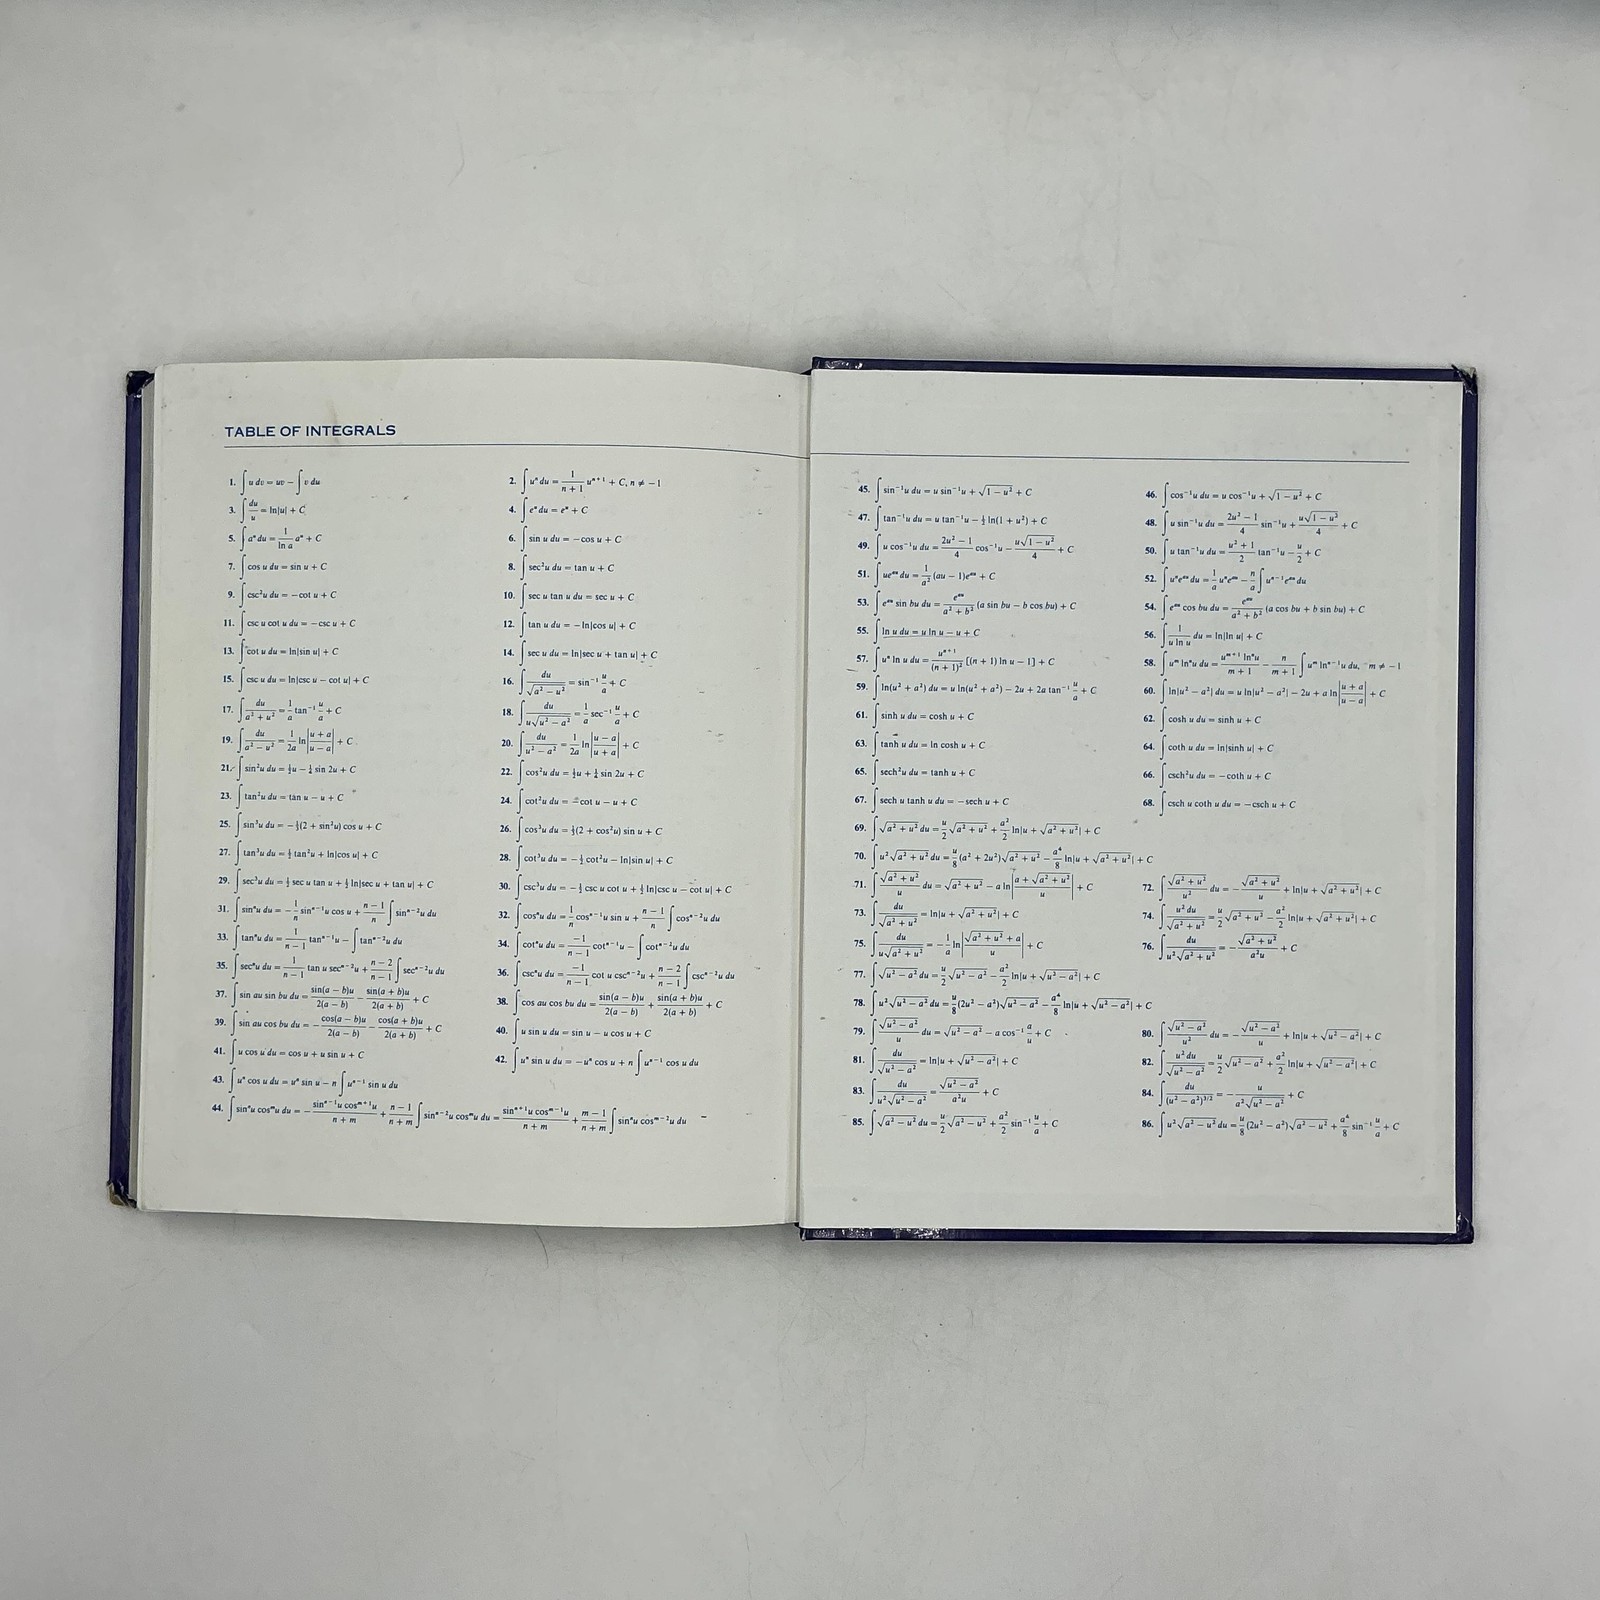 TABLE OF INTEGRALS
1. ∫ u dv = uv − ∫ v du
2. ∫ uⁿ du = 1/(n + 1) uⁿ⁺¹ + C, n ≠ −1
3. ∫ du/u = ln|u| + C
4. ∫ eᵘ du = eᵘ + C
5. ∫ aᵘ du = 1/(ln a) aᵘ + C
6. ∫ sin u du = −cos u + C
7. ∫ cos u du = sin u + C
8. ∫ sec²u du = tan u + C
9. ∫ csc²u du = −cot u + C
10. ∫ sec u tan u du = sec u + C
11. ∫ csc u cot u du = −csc u + C
12. ∫ tan u du = −ln|cos u| + C
13. ∫ cot u du = ln|sin u| + C
14. ∫ sec u du = ln|sec u + tan u| + C
15. ∫ csc u du = ln|csc u − cot u| + C
16. ∫ du/√(a² − u²) = sin⁻¹ u/a + C
17. ∫ du/(a² + u²) = 1/a tan⁻¹ u/a + C
18. ∫ du/(u√(u² − a²)) = 1/a sec⁻¹ u/a + C
19. ∫ du/(a² − u²) = 1/(2a) ln|(u + a)/(u − a)| + C
20. ∫ du/(u² − a²) = 1/(2a) ln|(u − a)/(u + a)| + C
21. ∫ sin²u du = ½u − ¼ sin 2u + C
22. ∫ cos²u du = ½u + ¼ sin 2u + C
23. ∫ tan²u du = tan u − u + C
24. ∫ cot²u du = −cot u − u + C
25. ∫ sin³u du = −⅓(2 + sin²u) cos u + C
26. ∫ cos³u du = ⅓(2 + cos²u) sin u + C
27. ∫ tan³u du = ½ tan²u + ln|cos u| + C
28. ∫ cot³u du = −½ cot²u − ln|sin u| + C
29. ∫ sec³u du = ½ sec u tan u + ½ ln|sec u + tan u| + C
30. ∫ csc³u du = −½ csc u cot u + ½ ln|csc u − cot u| + C
31. ∫ sinⁿu du = −1/n sinⁿ⁻¹u cos u + (n − 1)/n ∫ sinⁿ⁻²u du
32. ∫ cosⁿu du = 1/n cosⁿ⁻¹u sin u + (n − 1)/n ∫ cosⁿ⁻²u du
33. ∫ tanⁿu du = 1/(n − 1) tanⁿ⁻¹u − ∫ tanⁿ⁻²u du
34. ∫ cotⁿu du = −1/(n − 1) cotⁿ⁻¹u − ∫ cotⁿ⁻²u du
35. ∫ secⁿu du = 1/(n − 1) tan u secⁿ⁻²u + (n − 2)/(n − 1) ∫ secⁿ⁻²u du
36. ∫ cscⁿu du = −1/(n − 1) cot u cscⁿ⁻²u + (n − 2)/(n − 1) ∫ cscⁿ⁻²u du
37. ∫ sin au sin bu du = sin(a − b)u/2(a − b) − sin(a + b)u/2(a + b) + C
38. ∫ cos au cos bu du = sin(a − b)u/2(a − b) + sin(a + b)u/2(a + b) + C
39. ∫ sin au cos bu du = −cos(a − b)u/2(a − b) − cos(a + b)u/2(a + b) + C
40. ∫ u sin u du = sin u − u cos u + C
41. ∫ u cos u du = cos u + u sin u + C
42. ∫ uⁿ sin u du = −uⁿ cos u + n ∫ uⁿ⁻¹ cos u du
43. ∫ uⁿ cos u du = uⁿ sin u − n ∫ uⁿ⁻¹ sin u du
44. ∫ sinⁿu cosᵐu du = −(sinⁿ⁻¹u cosᵐ⁺¹u)/(n + m) + (n − 1)/(n + m) ∫ sinⁿ⁻²u cosᵐu du = (sinⁿ⁺¹u cosᵐ⁻¹u)/(n + m) + (m − 1)/(n + m) ∫ sinⁿu cosᵐ⁻²u du
45. ∫ sin⁻¹u du = u sin⁻¹u + √(1 − u²) + C
46. ∫ cos⁻¹u du = u cos⁻¹u + √(1 − u²) + C
47. ∫ tan⁻¹u du = u tan⁻¹u − ½ ln(1 + u²) + C
48. ∫ u sin⁻¹u du = (2u² − 1)/4 sin⁻¹u + u√(1 − u²)/4 + C
49. ∫ u cos⁻¹u du = (2u² − 1)/4 cos⁻¹u − u√(1 − u²)/4 + C
50. ∫ u tan⁻¹u du = (u² + 1)/2 tan⁻¹u − u/2 + C
51. ∫ ueᵃᵘ du = 1/a² (au − 1)eᵃᵘ + C
52. ∫ uⁿeᵃᵘ du = 1/a uⁿeᵃᵘ − n/a ∫ uⁿ⁻¹eᵃᵘ du
53. ∫ eᵃᵘ sin bu du = eᵃᵘ/(a² + b²) (a sin bu − b cos bu) + C
54. ∫ eᵃᵘ cos bu du = eᵃᵘ/(a² + b²) (a cos bu + b sin bu) + C
55. ∫ ln u du = u ln u − u + C
56. ∫ 1/(u ln u) du = ln|ln u| + C
57. ∫ uⁿ ln u du = uⁿ⁺¹/(n + 1)² [(n + 1) ln u − 1] + C
58. ∫ uᵐ lnⁿu du = (uᵐ⁺¹ lnⁿu)/(m + 1) − n/(m + 1) ∫ uᵐ lnⁿ⁻¹u du, m ≠ −1
59. ∫ ln(u² + a²) du = u ln(u² + a²) − 2u + 2a tan⁻¹ u/a + C
60. ∫ ln|u² − a²| du = u ln|u² − a²| − 2u + a ln|(u + a)/(u − a)| + C
61. ∫ sinh u du = cosh u + C
62. ∫ cosh u du = sinh u + C
63. ∫ tanh u du = ln cosh u + C
64. ∫ coth u du = ln|sinh u| + C
65. ∫ sech²u du = tanh u + C
66. ∫ csch²u du = −coth u + C
67. ∫ sech u tanh u du = −sech u + C
68. ∫ csch u coth u du = −csch u + C
69. ∫ √(a² + u²) du = u/2 √(a² + u²) + a²/2 ln|u + √(a² + u²)| + C
70. ∫ u²√(a² + u²) du = u/8 (a² + 2u²)√(a² + u²) − a⁴/8 ln|u + √(a² + u²)| + C
71. ∫ √(a² + u²)/u du = √(a² + u²) − a ln|(a + √(a² + u²))/u| + C
72. ∫ √(a² + u²)/u² du = −√(a² + u²)/u + ln|u + √(a² + u²)| + C
73. ∫ du/√(a² + u²) = ln|u + √(a² + u²)| + C
74. ∫ u² du/√(a² + u²) = u/2 √(a² + u²) − a²/2 ln|u + √(a² + u²)| + C
75. ∫ du/(u√(a² + u²)) = −1/a ln|(√(a² + u²) + a)/u| + C
76. ∫ du/(u²√(a² + u²)) = −√(a² + u²)/(a²u) + C
77. ∫ √(u² − a²) du = u/2 √(u² − a²) − a²/2 ln|u + √(u² − a²)| + C
78. ∫ u²√(u² − a²) du = u/8 (2u² − a²)√(u² − a²) − a⁴/8 ln|u + √(u² − a²)| + C
79. ∫ √(u² − a²)/u du = √(u² − a²) − a cos⁻¹ a/u + C
80. ∫ √(u² − a²)/u² du = −√(u² − a²)/u + ln|u + √(u² − a²)| + C
81. ∫ du/√(u² − a²) = ln|u + √(u² − a²)| + C
82. ∫ u² du/√(u² − a²) = u/2 √(u² − a²) + a²/2 ln|u + √(u² − a²)| + C
83. ∫ du/(u²√(u² − a²)) = √(u² − a²)/(a²u) + C
84. ∫ du/(u² − a²)³ᐟ² = −u/(a²√(u² − a²)) + C
85. ∫ √(a² − u²) du = u/2 √(a² − u²) + a²/2 sin⁻¹ u/a + C
86. ∫ u²√(a² − u²) du = u/8 (2u² − a²)√(a² − u²) + a⁴/8 sin⁻¹ u/a + C